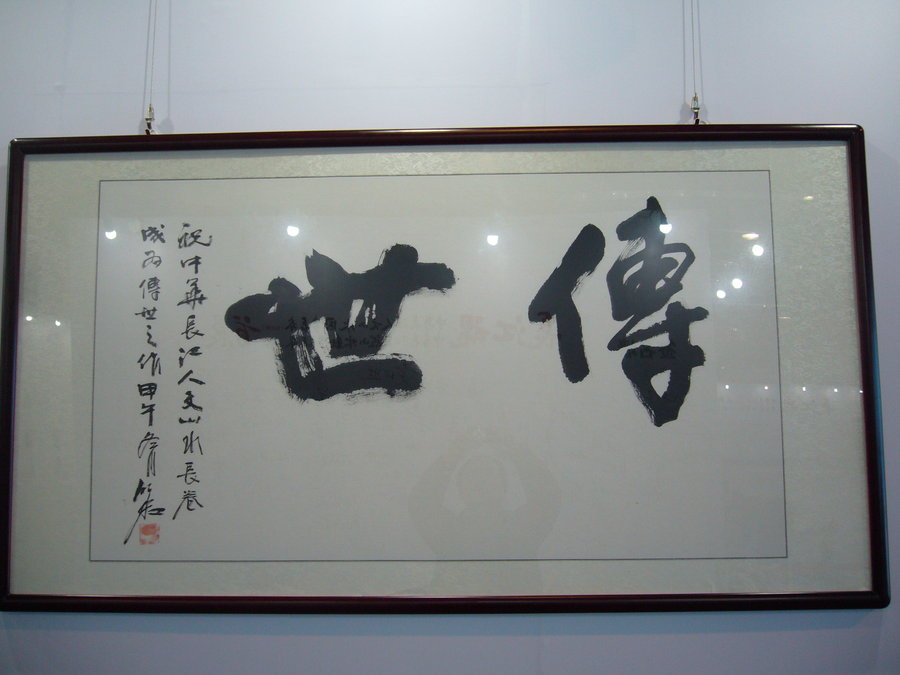 傳世
祝中華長江人文山水長卷
成為傳世之作甲午冬月